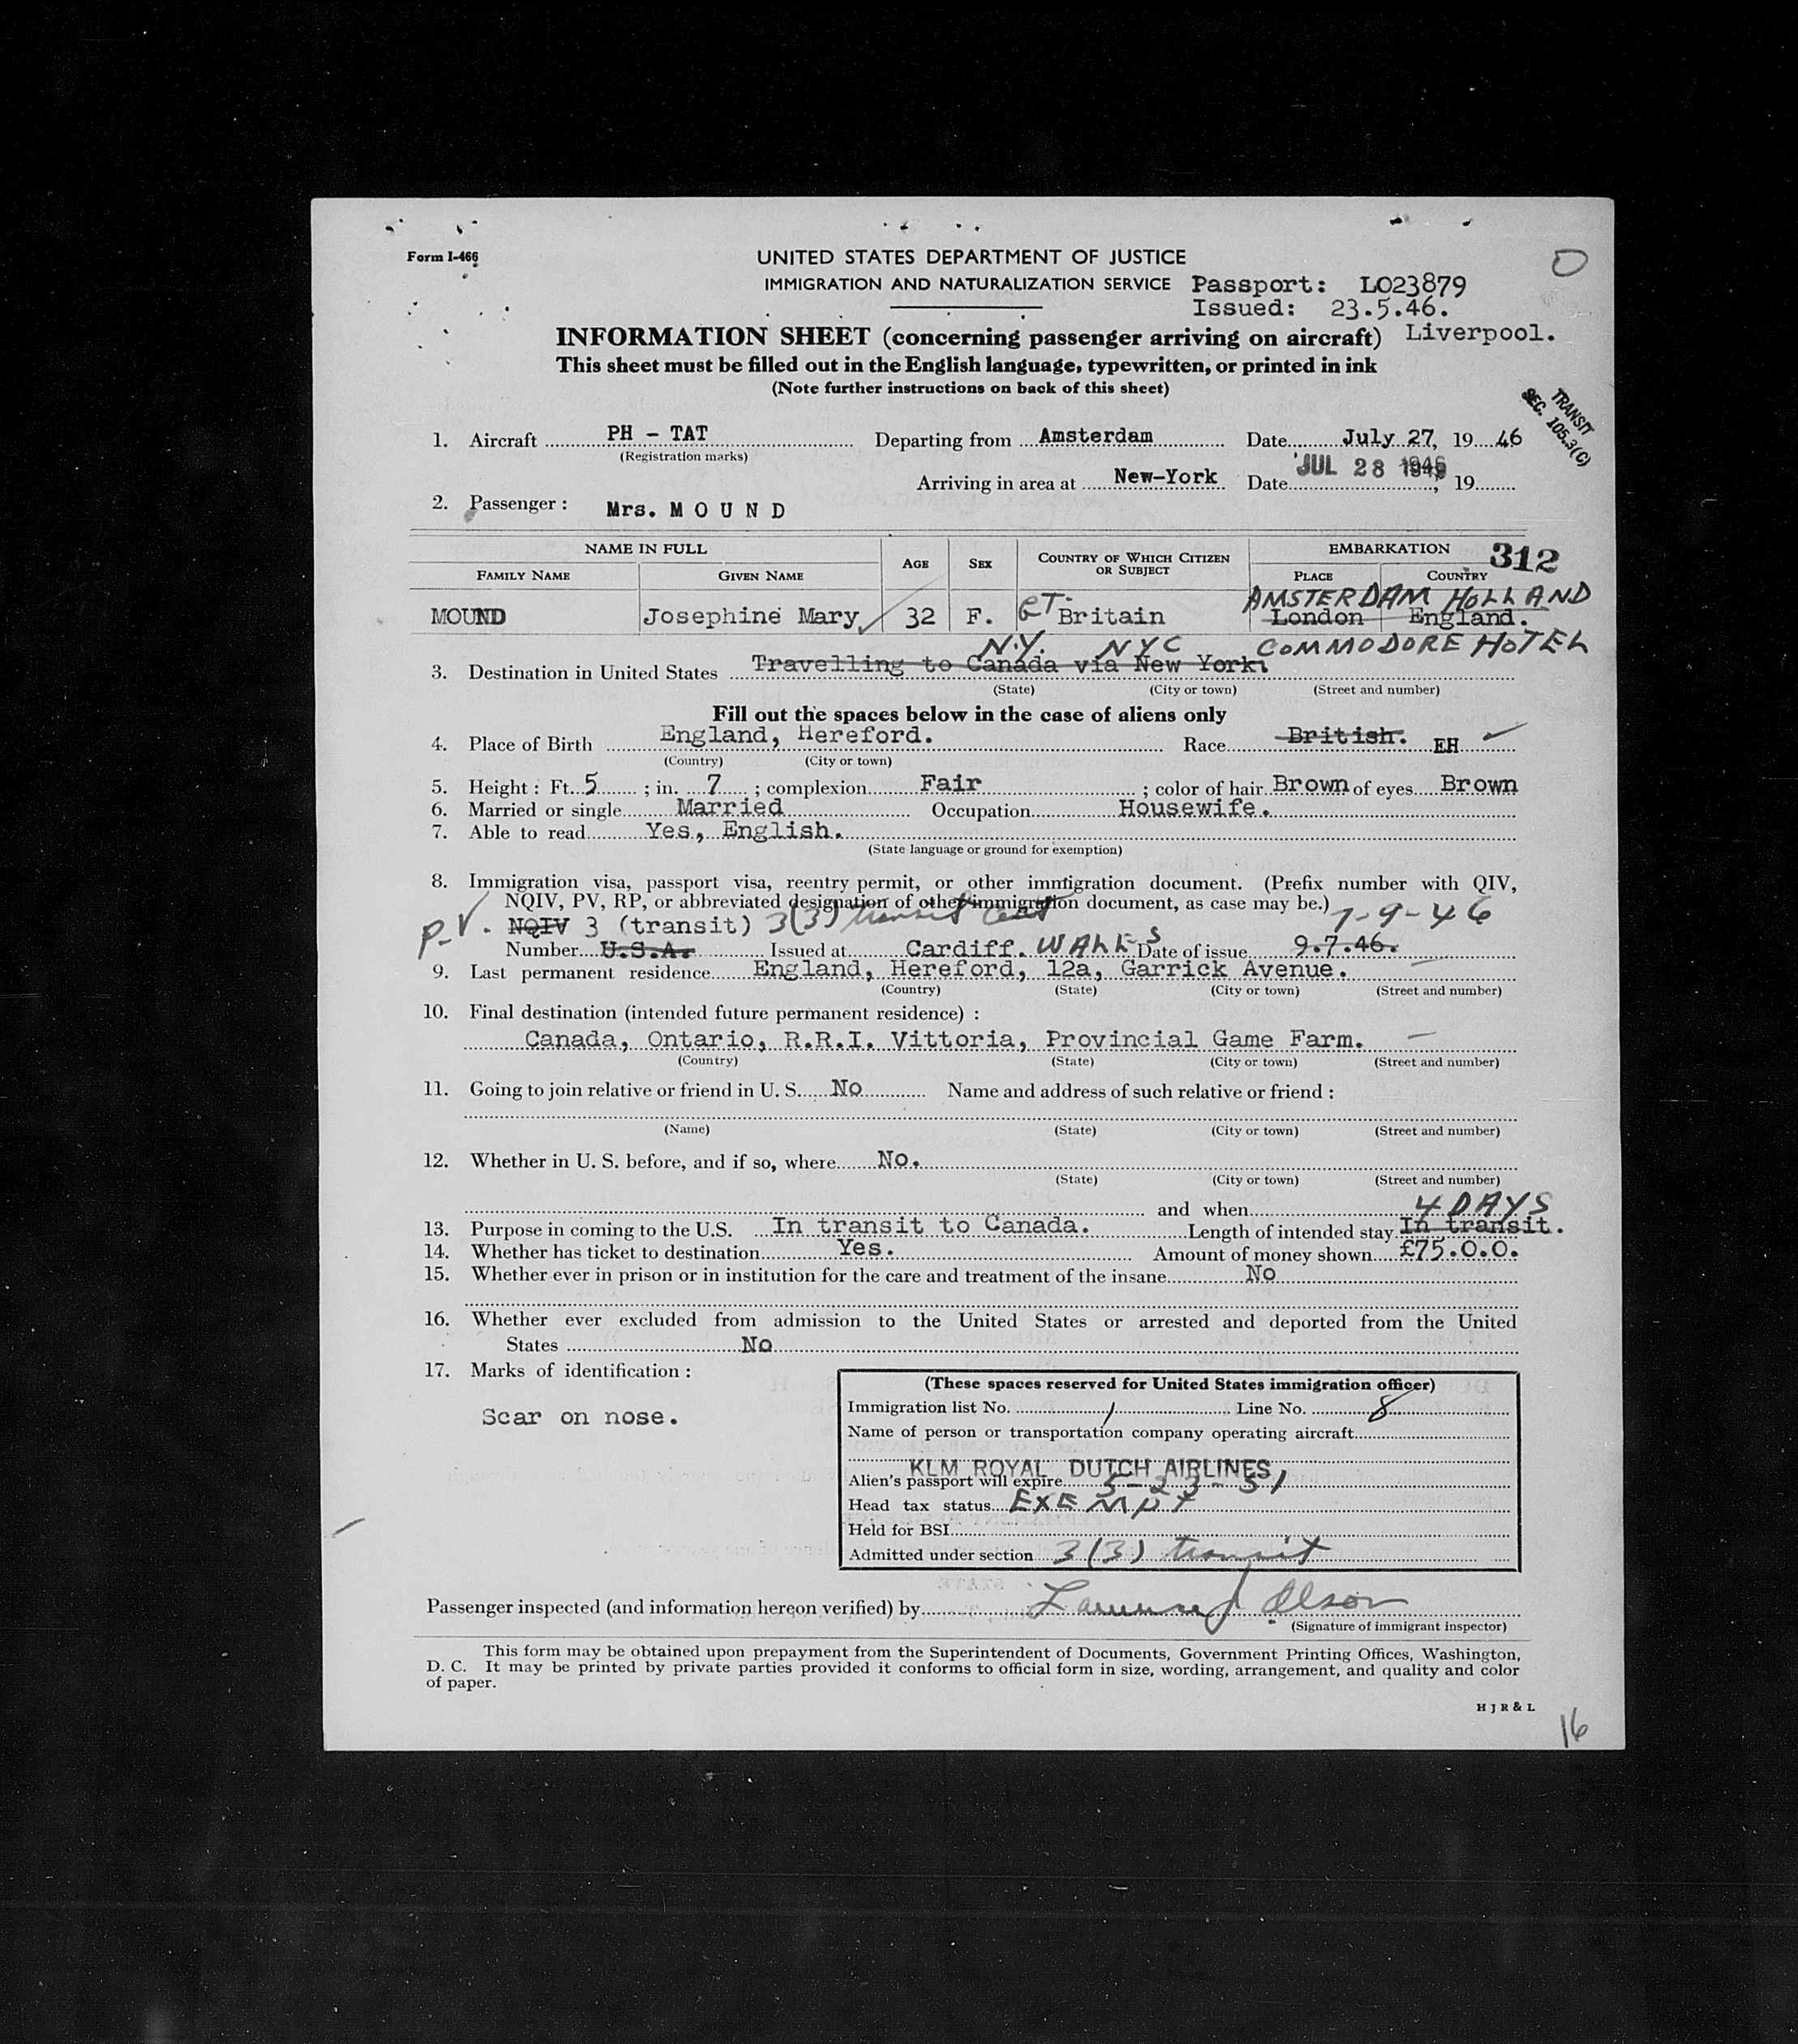 Form I-466
UNITED STATES DEPARTMENT OF JUSTICE
IMMIGRATION AND NATURALIZATION SERVICE Passport: L023879
Issued: 23.5.46.
INFORMATION SHEET (concerning passenger arriving on aircraft) Liverpool.
This sheet must be filled out in the English language, typewritten, or printed in ink
(Note further instructions on back of this sheet)
TRANSIT
SEC. 105.3(C)
1. Aircraft PH - TAT Departing from Amsterdam Date July 27, 19 46
(Registration marks)
Arriving in area at New-York Date JUL 28 1946, 19
2. Passenger: Mrs. M O U N D
NAME IN FULL AGE SEX COUNTRY OF WHICH CITIZEN OR SUBJECT EMBARKATION 312
FAMILY NAME GIVEN NAME PLACE COUNTRY
AMSTERDAM HOLLAND
MOUND Josephine Mary 32 F. GT. Britain London England.
N.Y. NYC COMMODORE HOTEL
3. Destination in United States Travelling to Canada via New York.
(State) (City or town) (Street and number)
Fill out the spaces below in the case of aliens only
4. Place of Birth England, Hereford. Race British. EH
(Country) (City or town)
5. Height: Ft. 5 ; in. 7 ; complexion Fair ; color of hair Brown of eyes Brown
6. Married or single Married Occupation Housewife.
7. Able to read Yes, English.
(State language or ground for exemption)
8. Immigration visa, passport visa, reentry permit, or other immigration document. (Prefix number with QIV,
NQIV, PV, RP, or abbreviated designation of other immigration document, as case may be.)
P.V. NQIV 3 (transit) 3(3) transit cert 7-9-46
Number U.S.A. Issued at Cardiff. WALES Date of issue 9.7.46.
9. Last permanent residence England, Hereford, 12a, Garrick Avenue.
(Country) (State) (City or town) (Street and number)
10. Final destination (intended future permanent residence) :
Canada, Ontario, R.R.I. Vittoria, Provincial Game Farm.
(Country) (State) (City or town) (Street and number)
11. Going to join relative or friend in U. S. No Name and address of such relative or friend :
(Name) (State) (City or town) (Street and number)
12. Whether in U. S. before, and if so, where No.
(State) (City or town) (Street and number)
and when 4 DAYS
13. Purpose in coming to the U.S. In transit to Canada. Length of intended stay In transit.
14. Whether has ticket to destination Yes. Amount of money shown £75.0.0.
15. Whether ever in prison or in institution for the care and treatment of the insane No
16. Whether ever excluded from admission to the United States or arrested and deported from the United
States No
17. Marks of identification :
Scar on nose.
(These spaces reserved for United States immigration officer)
Immigration list No. 1 Line No. 8
Name of person or transportation company operating aircraft
KLM ROYAL DUTCH AIRLINES
Alien's passport will expire 5-23-51
Head tax status EXEMPT
Held for BSI
Admitted under section 3(3) transit
Passenger inspected (and information hereon verified) by Olson
(Signature of immigrant inspector)
This form may be obtained upon prepayment from the Superintendent of Documents, Government Printing Offices, Washington,
D. C. It may be printed by private parties provided it conforms to official form in size, wording, arrangement, and quality and color
of paper.
H J R & L
16